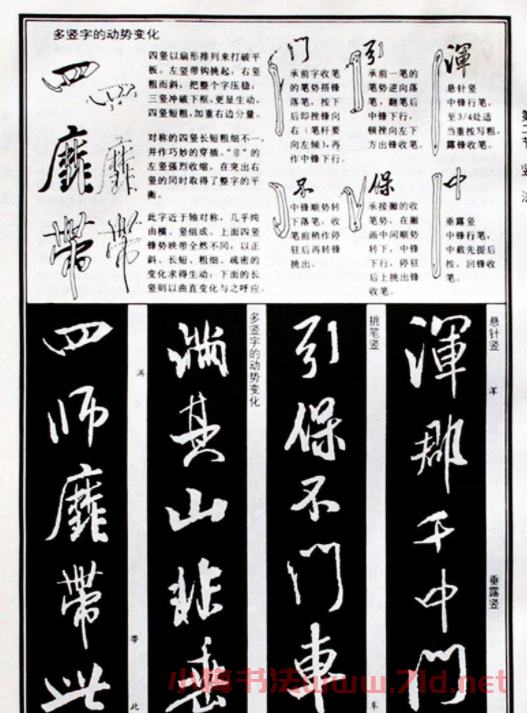 多竖字的动势变化
四
四竖以扇形排列来打破平
板。左竖带钩挑起，右竖
粗而斜，把整个字压稳；
三竖冲破下框，更显生动，
四竖短粗，加重右边分量。
靡
对称的四竖长短粗细不一，
并作巧妙的穿插。“非”的
左竖强烈收缩，在突出右
竖的同时取得了整字的平
衡。
带
此字近于轴对称，几乎纯
由横、竖组成。上面四竖
锋势映带全然不同，以正
斜、长短、粗细、疏密的
变化求得生动；下面的长
竖则以曲直变化与之呼应。
门
承前字收笔
的笔势搭锋
落笔，按下
后即挫锋向
右（笔杆要
向左倾），再
作中锋下行。
引
承前一笔的
笔势逆向落
笔，翻笔后
中锋下行，
顿挫向左下
方出锋收笔。
渾
悬针竖
中锋行笔，
至3/4处适
当重按写粗，
露锋收笔。
不
中锋顺势转
下落笔，收
笔前稍作停
驻后再转锋
挑出。
保
承接撇的收
笔势，在撇
画中间顺势
转下，中锋
下行，停驻
后上挑出锋
收笔。
中
垂露竖
中锋行笔，
中截先提后
按，回锋收
笔。
悬针竖
渾
垂露竖
渾
郡
千
中
門
挑笔竖
车
引
保
不
門
車
多竖字的动势变化
滿
其
山
非
垂
满
带
此
四
师
靡
帶
此
小楷书法www.7ld.net